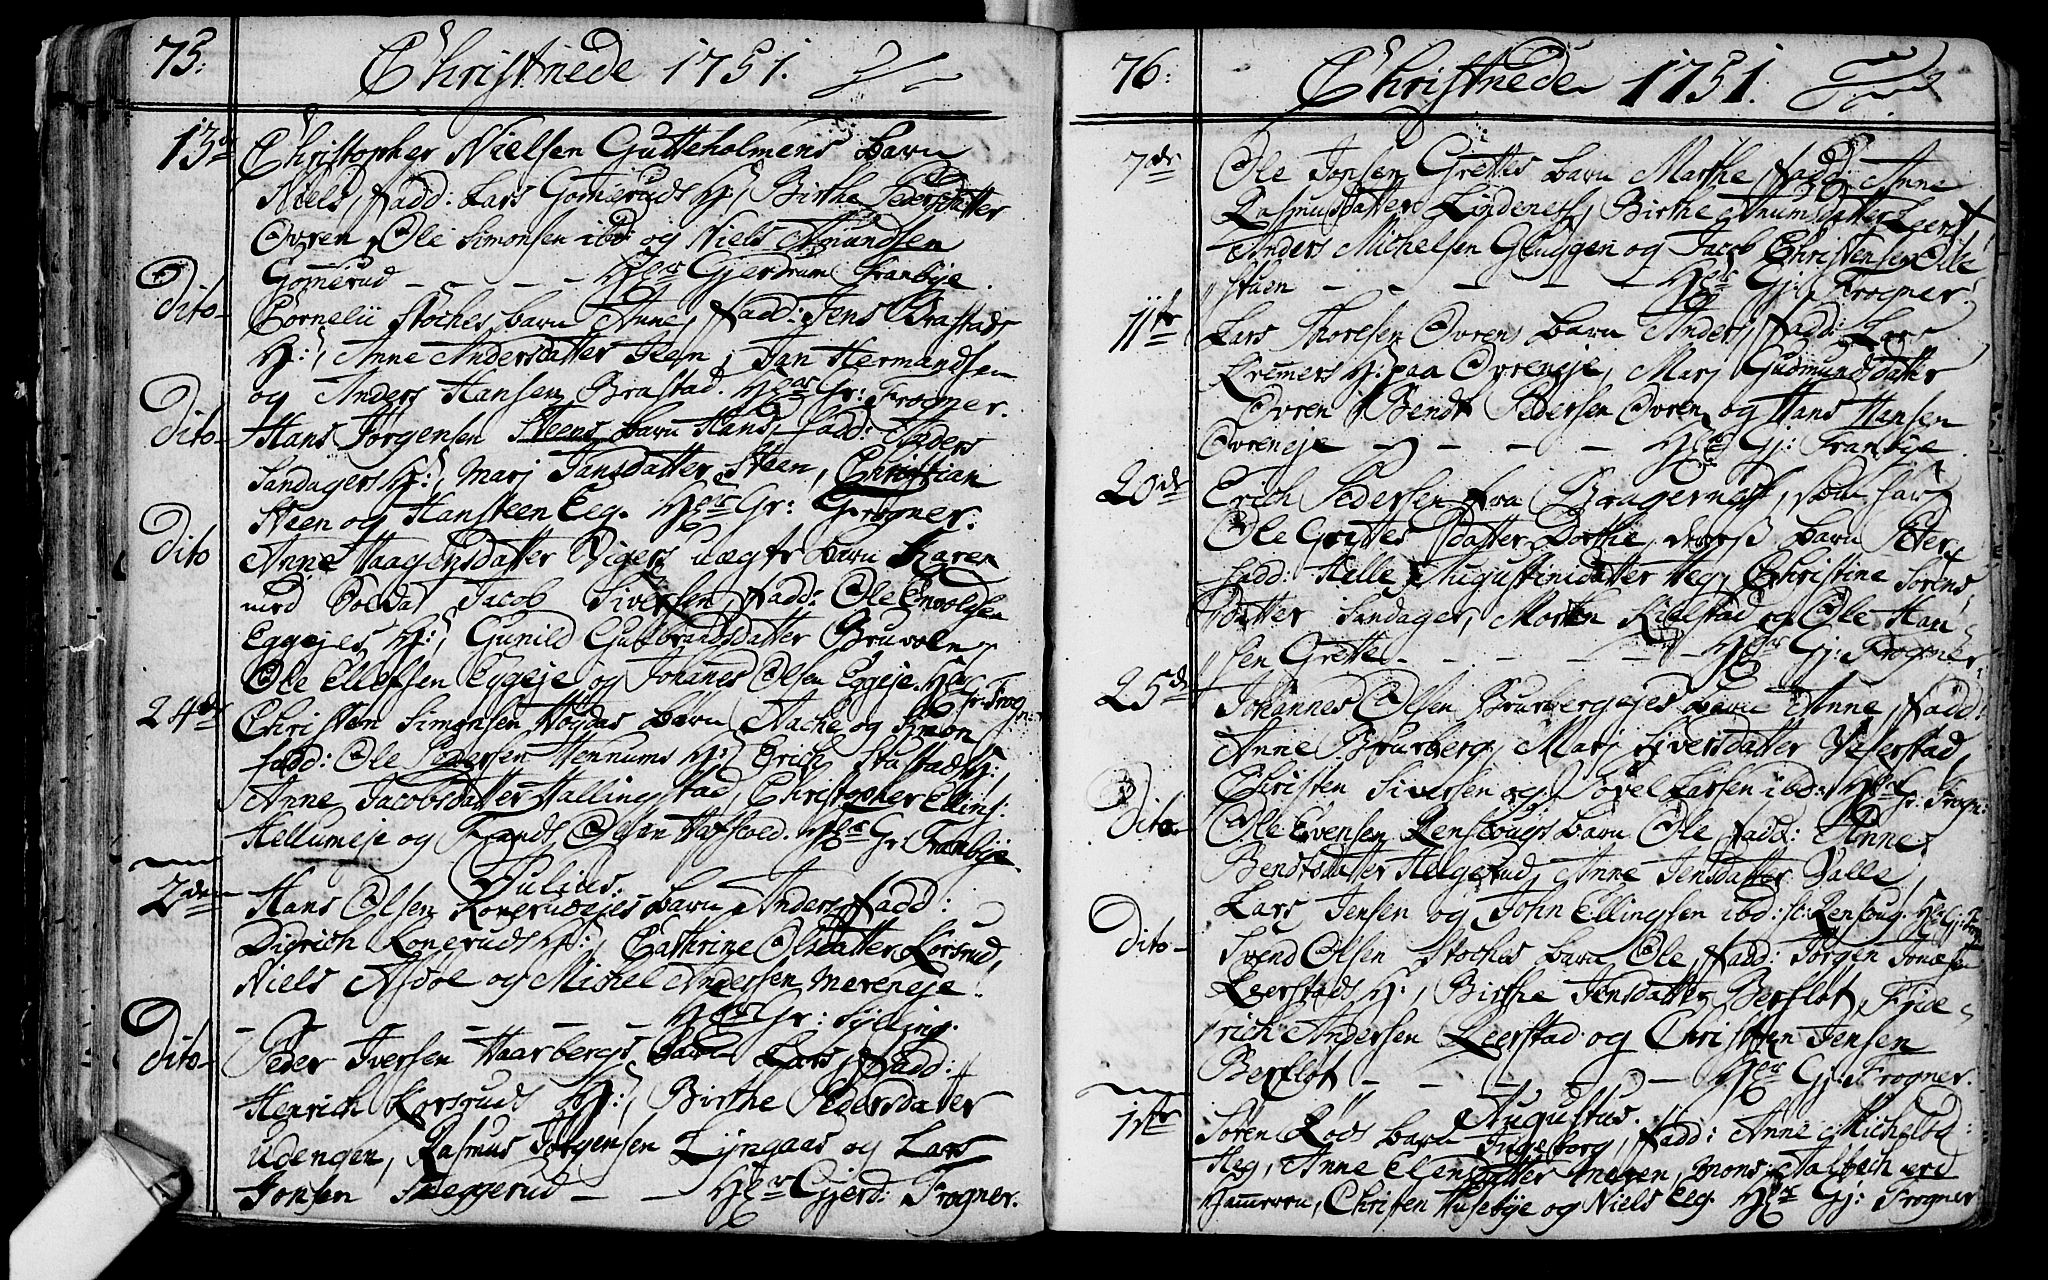 75.
Christnede 1751.
13de Christopher Nielsen Gutteholmens barn
Niels, Fadd: Lars Gomeruds H:, Birthe Pedersdatter
Ovren, Ole Simonsen ibd: og Niels Amundsen
Gomerud - - - Hr Gjerdrum Tranbye.
Dito- Cornelii Stoches barn Anne, Fadd: Jens Brastads
H:, Anne Andersdatter Teen, Jan Hermandsen
og Anders Hansen Brastad. Hr Gr: Frogner.
Dito- Hans Jorgensen Steens barn Hans, Fadd: Anders
Sandagers H:, Marj Jansdatter Steen, Christian
Steen og Hans Steen Eeg. Hr Gr: Frogner.
Dito Anne Haagensdatter uægte barn Karen
med Soldat Jacob Siversen, Fadd: Ole Envoldsen
Eggejes H:, Gunild Gulbrandsdatter Bruvoln,
Ole Ellefsen Eggeje og Johanes Olsen Eggeje. Hr Gr: Frogn:
24de Christen Simonsen barn Aache og Simon
Fadd: Ole Pedersen Hennums H:, Erich Stustads H:
Anne Jacobsdatter Hallingstad, Christopher Ellings:
Hellumeje og Olsen. Hr Gr Tranbye
Julius.
2den Hans Olsen Konerudejes barn Anders, Fadd:
Didrich Koneruds H:, Cathrine Olsdatter Korsrud,
Niels Asdøl og Michel Andersen Mereneje.
- - - - - Hr Gr: Sylling.
Dito- Peder Iversen Haarbergs barn Lars, Fadd:
Henrich Korsruds H:, Birthe Pedersdatter
Udengen, Rasmus Jorgensen Lyngaas og Lars
Jonsen Skeggerud - - Hr Gjerd: Frogner.
76:
Christnede 1751.
7de Ole Jonsen Grettes barn Marthe, Fadd: Anne
Rasmusdatter Lindenes, Birthe datter Leerst,
Anders Michelsen Gluggen og Jacob Christensen Olle
stuen - - - - - Hr Gj: Frogner.
11te Lars Thoresen Ovrens barn Anders, Fadd: Lars
Kremers H: paa Ovreneje, Marj Gudmundsdatter
Ovren, Bendt Pedersen Ovren og Hans Hansen
Ovreneje - - - - Hr Gj: Tranbye.
20de Erich Pedersen fra Bragernes, som har
Ole Grettes datter Dorthe, deres barn Peter,
Fadd: Helle Augustinidatter Heg, Christine Sorens
datter Sandager, Morten Kielstad og Ole Han
sen Grette - - - - - Hr Gj: Frogner.
25de Johannes Olsen Brurbergejes barn Anne, Fadd:
Anne Brurberg, Marj Siversdatter Vefferstad,
Christen Siversen og Povel Larsen ibd: Hr Gj: Frogn:
Dito- Ole Evensen Renskougs barn Ole, Fadd: Anne
Bendtsdatter Helgerud, Anne Jensdatter Valle,
Lars Jensen og John Ellingsen ibd: st: Renskoug. Hr Gj: Frogn
Dito- Svend Olsen Stoches barn Ole, Fadd: Jorgen Jonæsen
Leerstads H:, Birthe Jensdatter Berflot, Fride
rich Andersen Leerstad og Christen Jensen
Berflot - - - - - Hr Gj: Frogner.
Augustus.
1ste Soren Røds barn Ingeborg, Fadd: Anne Michelsd:
Heg, Anne Elensdatter Meren, Mons Aalbech ved
Hammeren, Christen Husebye og Niels Eeg. Hr Gj: Frogner